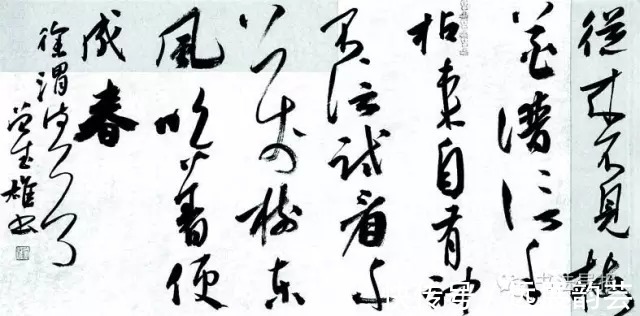 從來不見梅
花譜信手
拈來自有神
不信試看千
万樹東
風吹著便
成春
徐渭诗
雄书